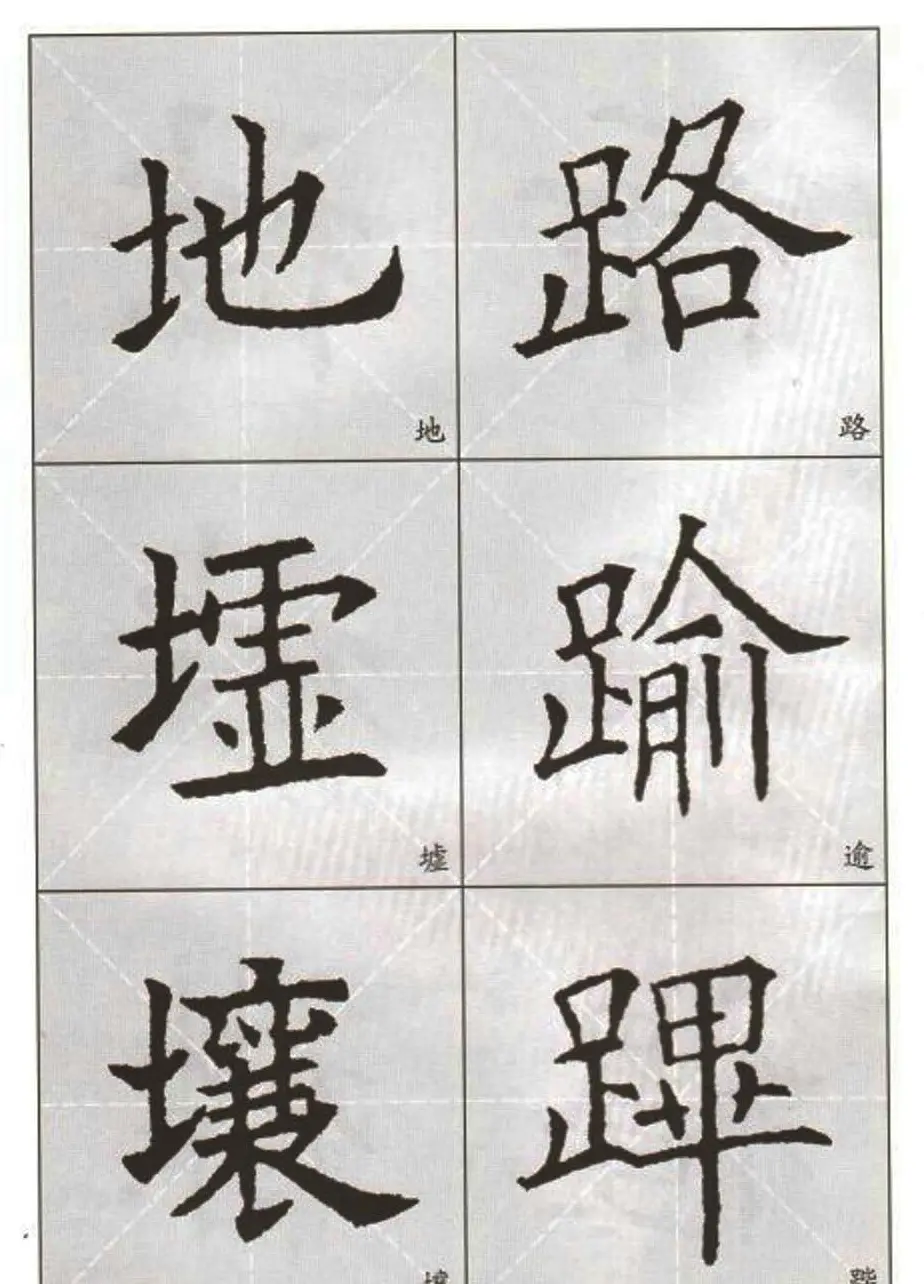 地 路
地 路
墟 踰
墟 逾
壤 蹕
壤